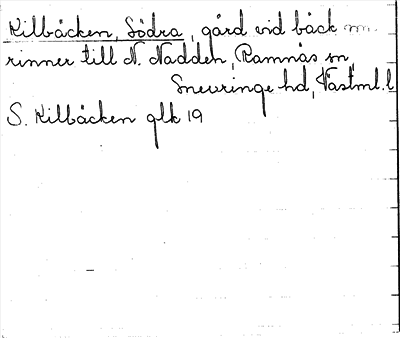 Kilbäcken, Södra, gård vid bäck m.
rinner till N. Nadden, Ramnäs sn,
Snevringe hd, Västml. l
S. Kilbäcken glk 19